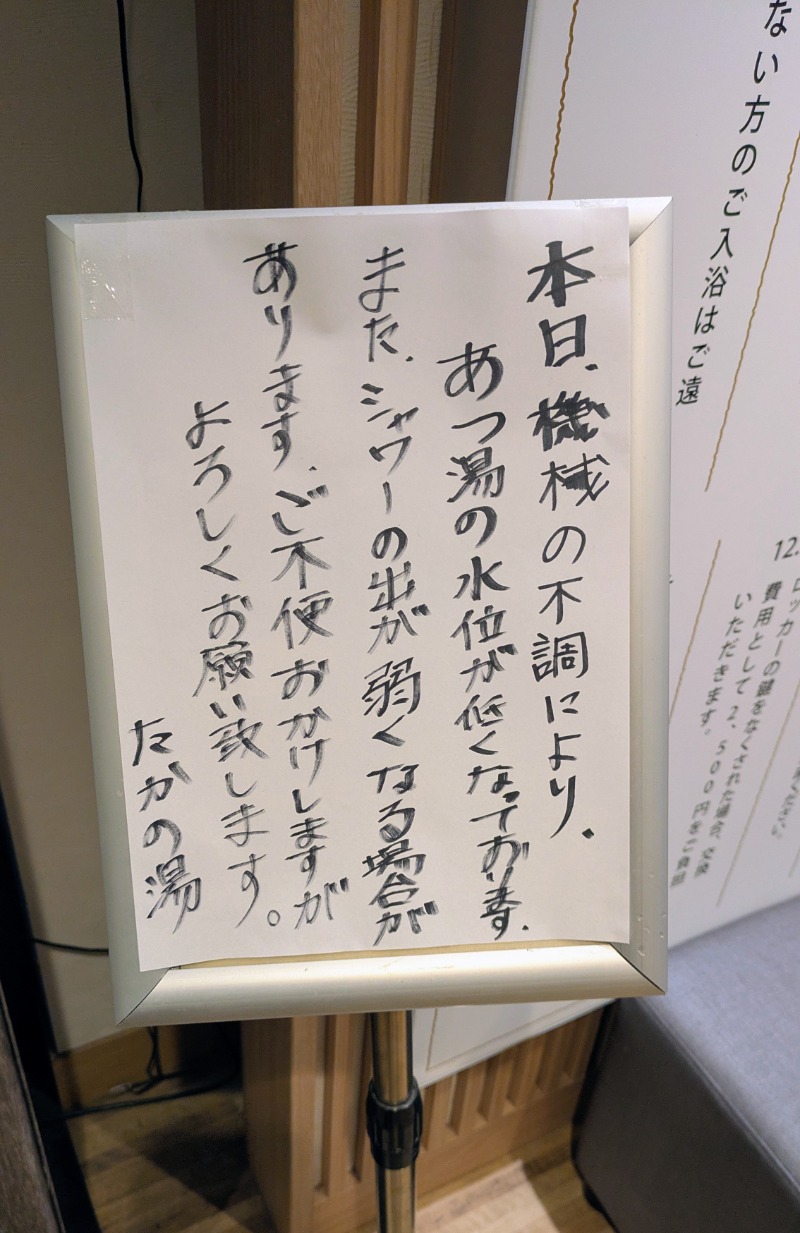 ない方のご入浴はご遠
12.
ロッカーの鍵をなくされた場合、交換
費用として2,500円をご負担
いただきます。
本日、機械の不調により、
あつ湯の水位が低くなっております。
また、シャワーの出が弱くなる場合が
あります、ご不便おかけしますが
よろしくお願い致します。
たかの湯